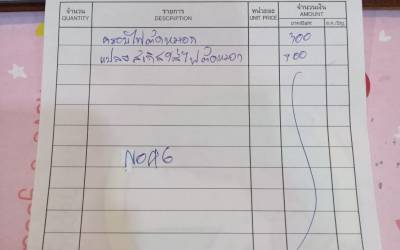 จำนวน รายการ หน่วยละ จำนวนเงิน
QUANTITY DESCRIPTION UNIT PRICE AMOUNT
ครอบไฟตัดหมอก 300
แปลงสวิทช์ไฟตัดหมอก 700
NO46